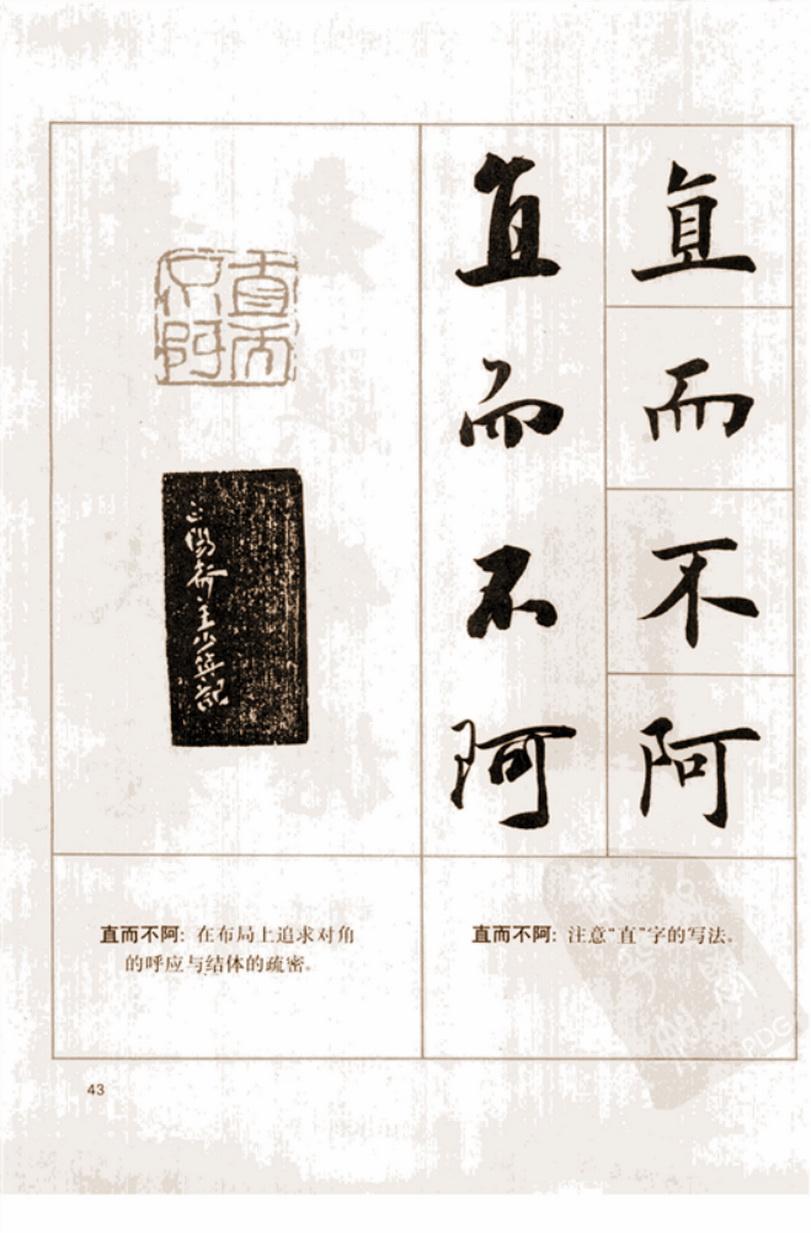 直
而
不
阿
直
而
不
阿
直而
不阿
直而不阿：在布局上追求对角
的呼应与结体的疏密。
直而不阿：注意“直”字的写法。
43
PDG